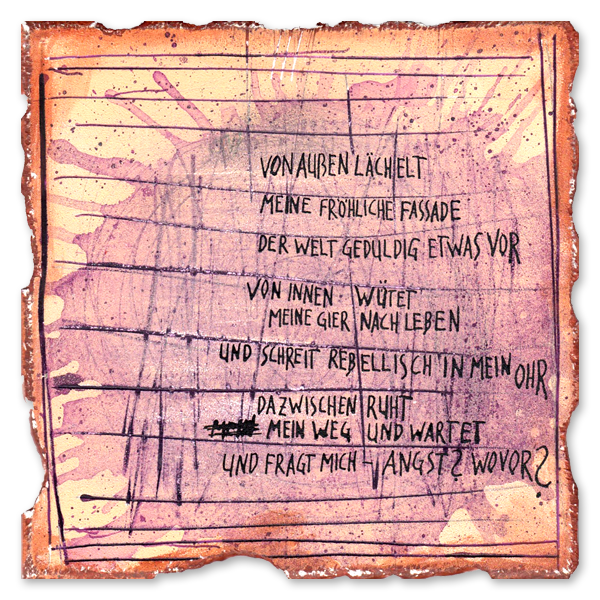 VON AUßEN LÄCHELT
MEINE FRÖHLICHE FASSADE
DER WELT GEDULDIG ETWAS VOR
VON INNEN WÜTET
MEINE GIER NACH LEBEN
UND SCHREIT REBELLISCH IN MEIN OHR
DAZWISCHEN RUHT
MEIN WEG UND WARTET
UND FRAGT MICH – ANGST? WOVOR?